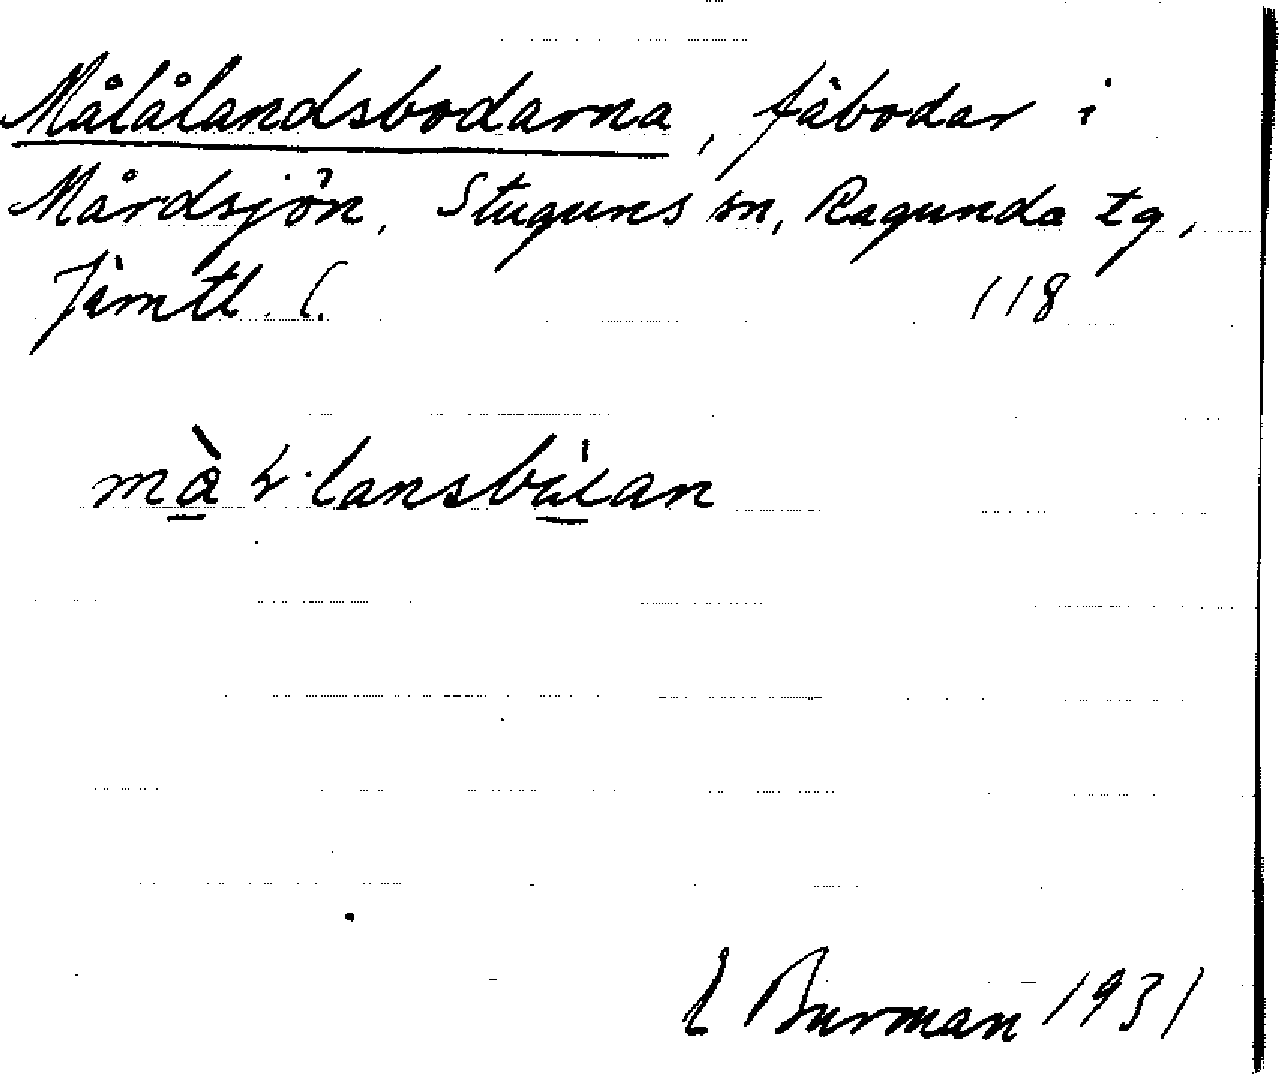 Målålandsbodarna, fäbodar i
Mårdsjön, Stuguns sn, Ragunda tg,
Jämtl. l. 118
E Burman 1931